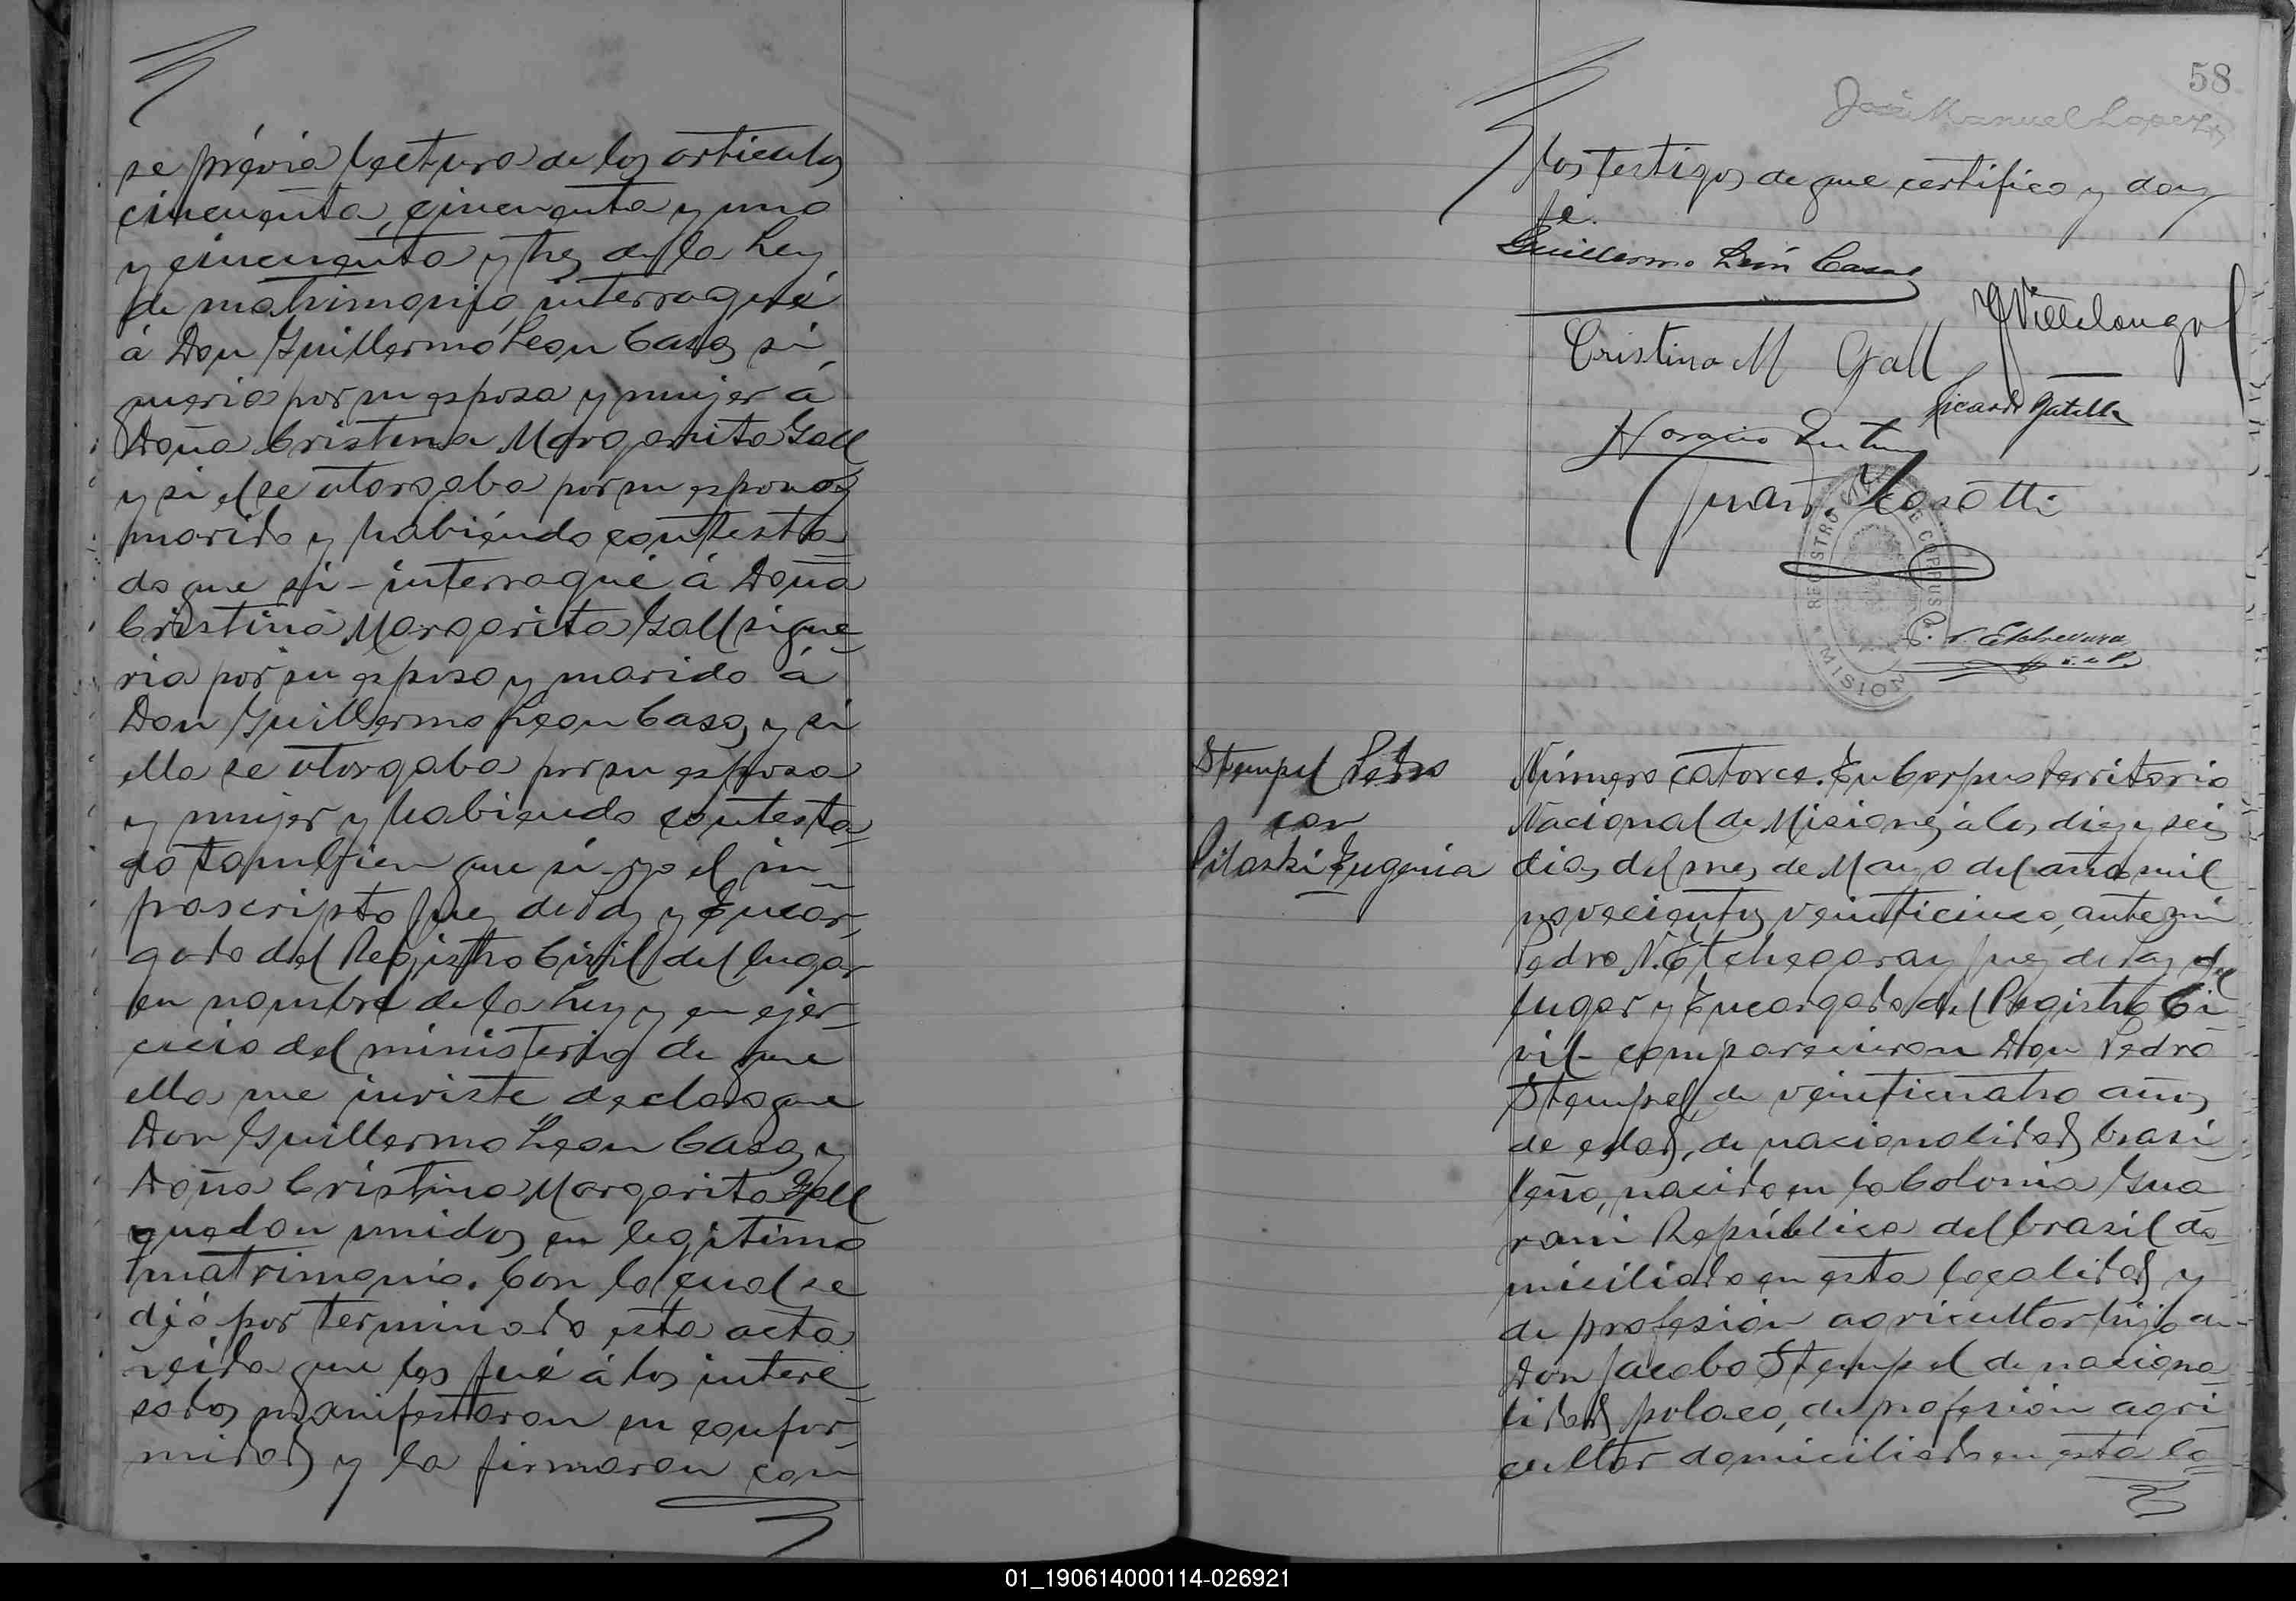 se prévia lectura de los articulos
cincuenta, cincuenta y uno
y cincuenta y tres de la Ley
de matrimonio, interrogué
á Don Guillermo Leon Casas, si
queria por su esposa y mujer á
Doña Cristina Margarita Gall
y si el se otorgaba por su esposo y
marido y habiéndo contesta=
do que si - interrogué á Doña
Cristina Margarita Gall si que=
ria por su esposo y marido á
Don Guillermo Leon Casas, y si
ella se otorgaba por su esposa
y mujer y habiendo contesta=
do tambien que si - yo el in=
frascripto Juez de Paz y Encar=
gado del Registro Civil del lugar
en nombre de la Ley y en ejer=
cicio del ministerio de que
ella me inviste declaro que
Don Guillermo Leon Casas y
Doña Cristina Margarita Gall
quedan unidos en legitimo
matrimonio. Con lo cual se
dió por terminada esta acta
leida que les fué á los intere=
sados manifestaron su confor=
midad y la firmaron con
58
José Manuel Lopez
los testigos de que certifico y doy
fé.
Guillermo León Casas
Villalonga
Cristina M Gall
Ricardo
Horacio
Juan
REGISTRO CIVIL DE CORPUS
MISIONES
Stempel Pedro
con
Pitaski Eugenia
Número catorce. En Corpus territorio
Nacional de Misiones, á los diez y seis
dias del mes de Mayo del año mil
novecientos veinticinco, ante mi
Pedro N. Etchegaray Juez de Paz del
lugar y Encargado del Registro Ci=
vil - comparecieron Don Pedro
Stempel, de veinticuatro años
de edad, de nacionalidad brasi=
leño, nacido en la Colonia Gua=
rani República del Brasil do=
miciliado en esta localidad y
de profesión agricultor hijo de
Don Jacobo Stempel de naciona=
lidad polaco, de profesion agri=
cultor domiciliado en esta lo=
01_190614000114-026921